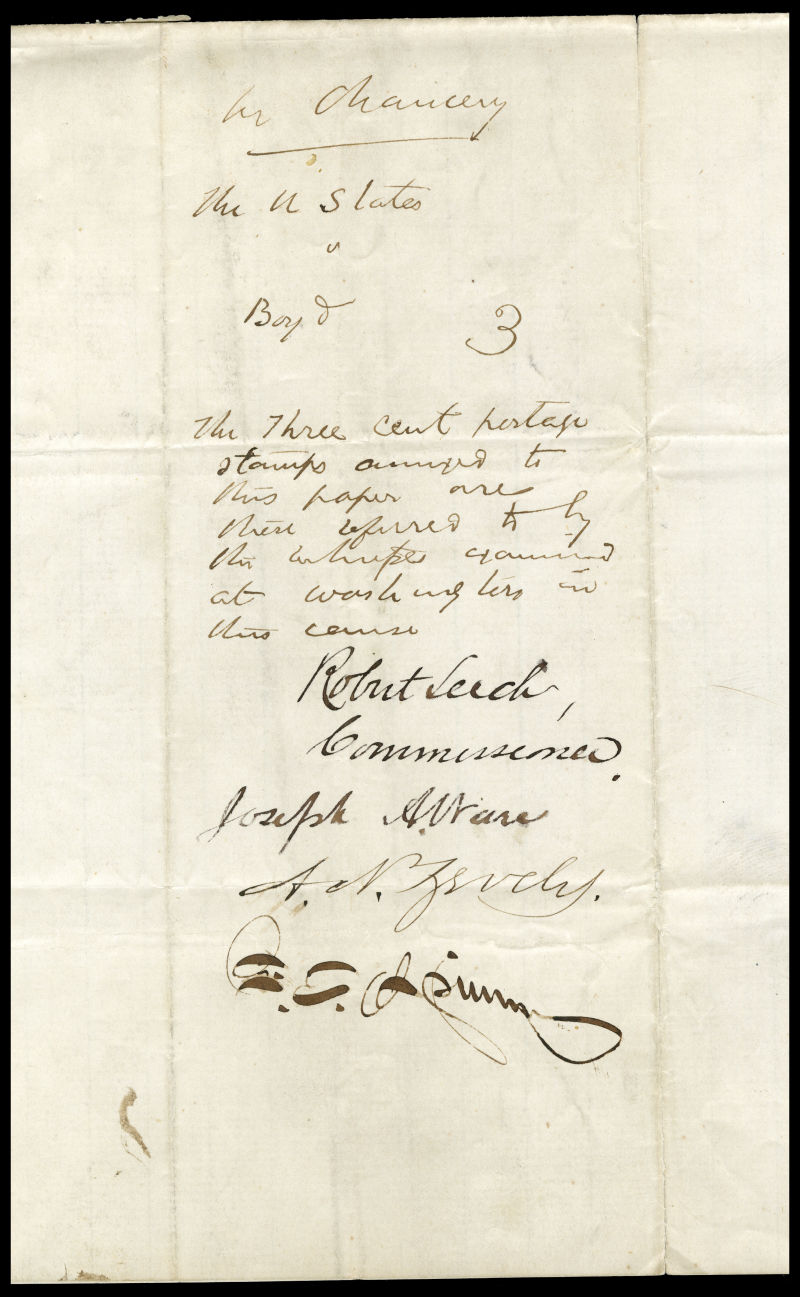 In Chancery
The U States
v
Boyd
3
The Three cent postage
stamps annexed to
this paper are
those referred to by
the witnesses examined
at Washington in
this cause
Robert Leech,
Commissioner.
Joseph A. Ware
A. N. Zevely.